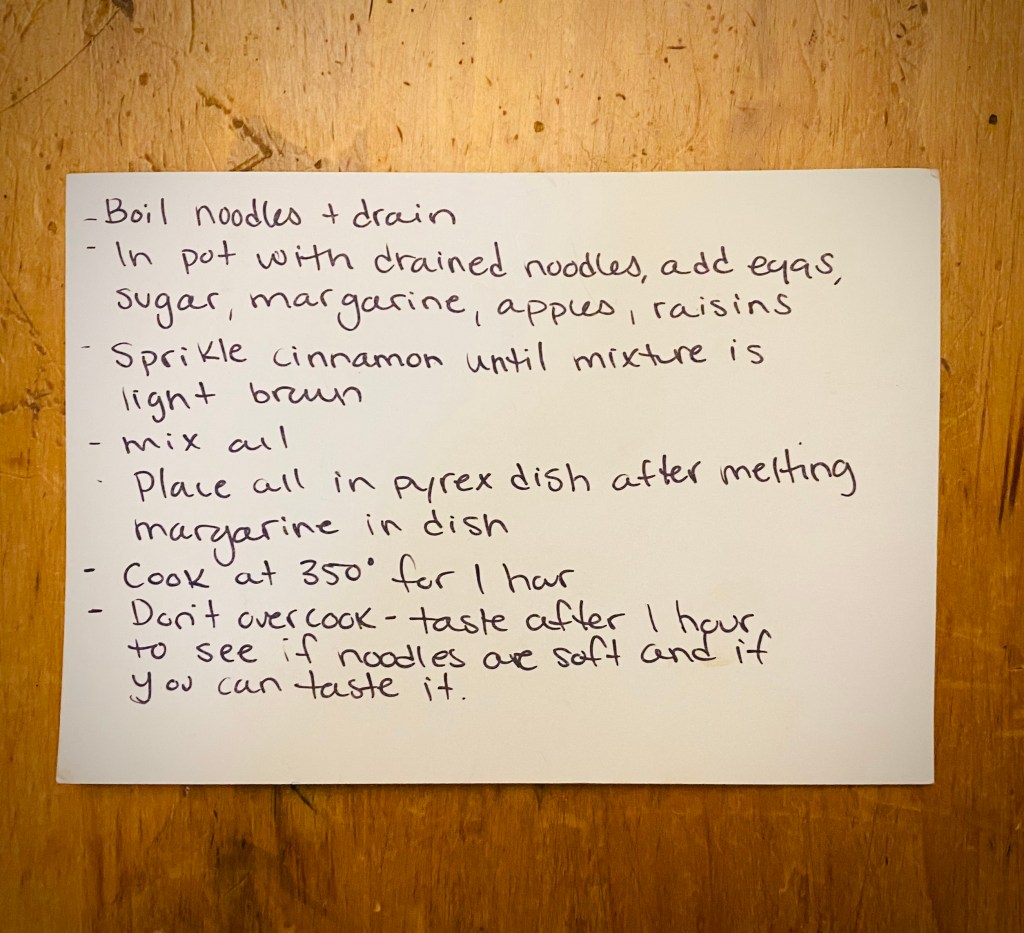 - Boil noodles + drain
- In pot with drained noodles, add eggs,
sugar, margarine, apples, raisins
- Sprikle cinnamon until mixture is
light brown
- mix all
- Place all in pyrex dish after melting
margarine in dish
- Cook at 350° for 1 hour
- Don't overcook - taste after 1 hour
to see if noodles are soft and if
you can taste it.